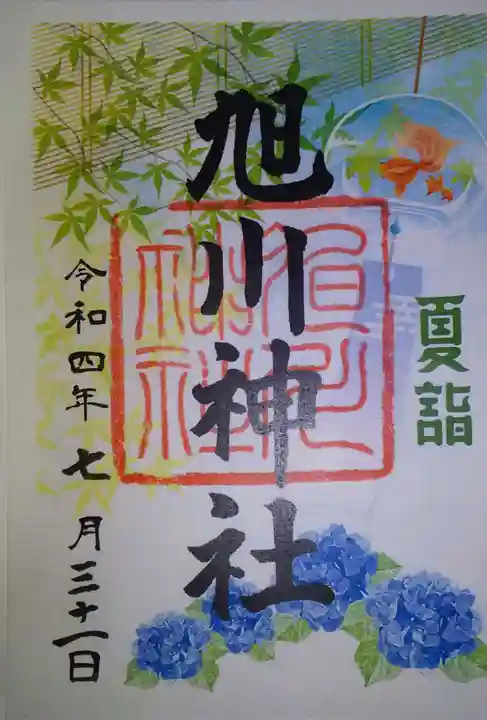 夏詣
旭川神社
令和四年七月三十一日